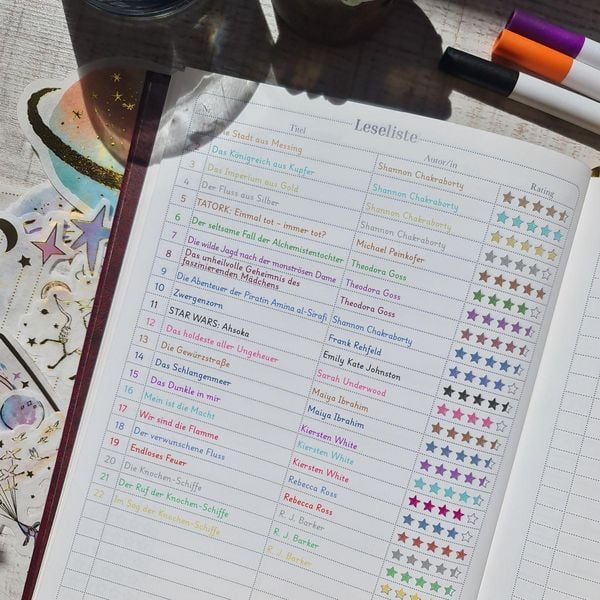 Leseliste
Nr. Titel Autor/in Rating
Stadt aus Messing Shannon Chakraborty
Das Königreich aus Kupfer Shannon Chakraborty
3 Das Imperium aus Gold Shannon Chakraborty
4 Der Fluss aus Silber Shannon Chakraborty
5 TATORK: Einmal tot – immer tot? Michael Peinkofer
6 Der seltsame Fall der Alchemistentochter Theodora Goss
7 Die wilde Jagd nach der monströsen Dame Theodora Goss
8 Das unheilvolle Geheimnis des
faszinierenden Mädchens Theodora Goss
9 Die Abenteuer der Piratin Amina al-Sirafi Shannon Chakraborty
10 Zwergenzorn Frank Rehfeld
11 STAR WARS: Ahsoka Emily Kate Johnston
12 Das holdeste aller Ungeheuer Sarah Underwood
13 Die Gewürzstraße Maiya Ibrahim
14 Das Schlangenmeer Maiya Ibrahim
15 Das Dunkle in mir Kiersten White
16 Mein ist die Macht Kiersten White
17 Wir sind die Flamme Kiersten White
18 Der verwunschene Fluss Rebecca Ross
19 Endloses Feuer Rebecca Ross
20 Die Knochen-Schiffe R. J. Barker
21 Der Ruf der Knochen-Schiffe R. J. Barker
22 Im Sog der Knochen-Schiffe R. J. Barker